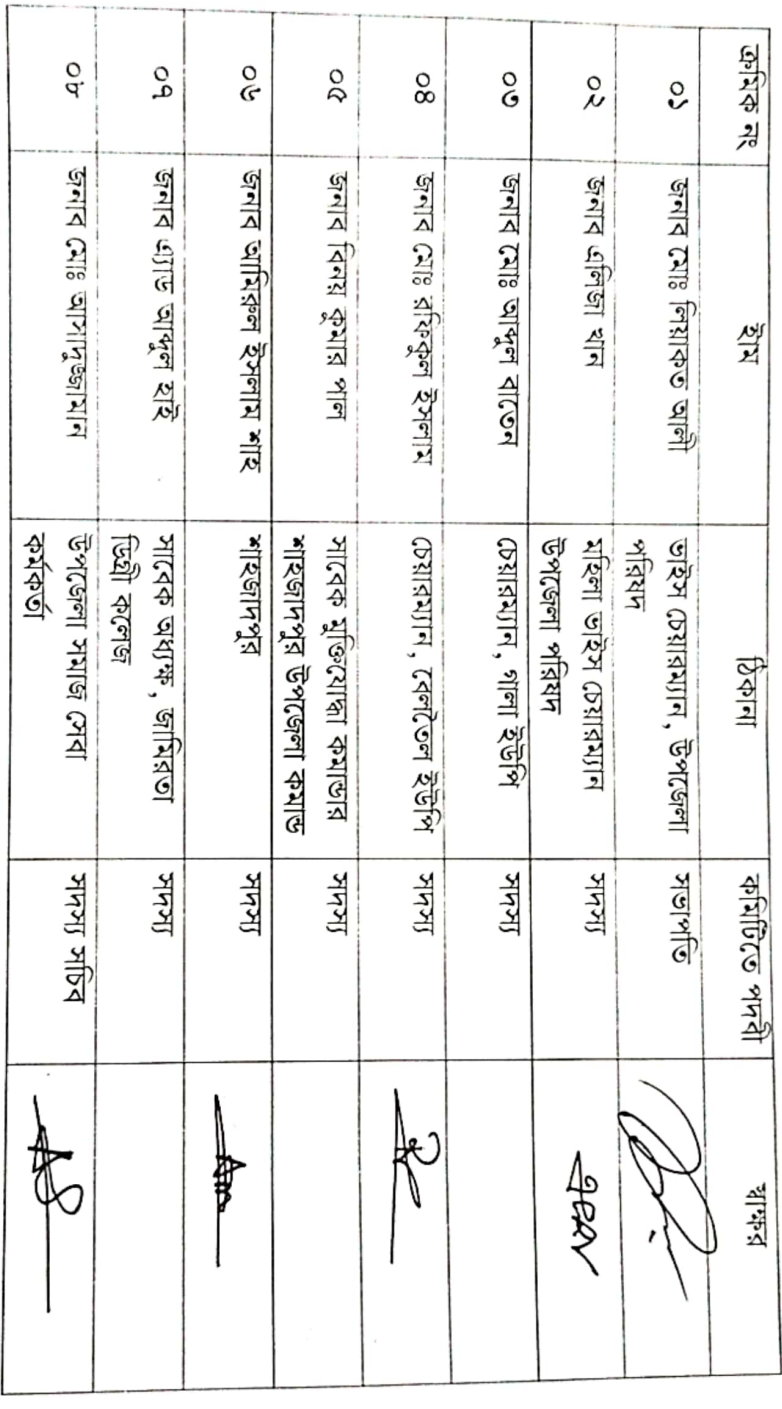 ক্রমিক নং নাম ঠিকানা কমিটিতে পদবী স্বাক্ষর
০১ জনাব মোঃ লিয়াকত আলী ভাইস চেয়ারম্যান, উপজেলা পরিষদ সভাপতি
০২ জনাব এলিজা খান মহিলা ভাইস চেয়ারম্যান উপজেলা পরিষদ সদস্য
০৩ জনাব মোঃ আব্দুল বাতেন চেয়ারম্যান, গালা ইউপি সদস্য
০৪ জনাব মোঃ রফিকুল ইসলাম চেয়ারম্যান, বেলতৈল ইউপি সদস্য
০৫ জনাব বিনয় কুমার পাল সাবেক মুক্তিযোদ্ধা কমান্ডার শাহজাদপুর উপজেলা কমান্ড সদস্য
০৬ জনাব আমিরুল ইসলাম শাহ শাহজাদপুর সদস্য
০৭ জনাব এ্যাড আব্দুল হাই সাবেক অধ্যক্ষ, জামিরতা ডিগ্রী কলেজ সদস্য
০৮ জনাব মোঃ আসাদুজ্জামান উপজেলা সমাজ সেবা কর্মকর্তা সদস্য সচিব